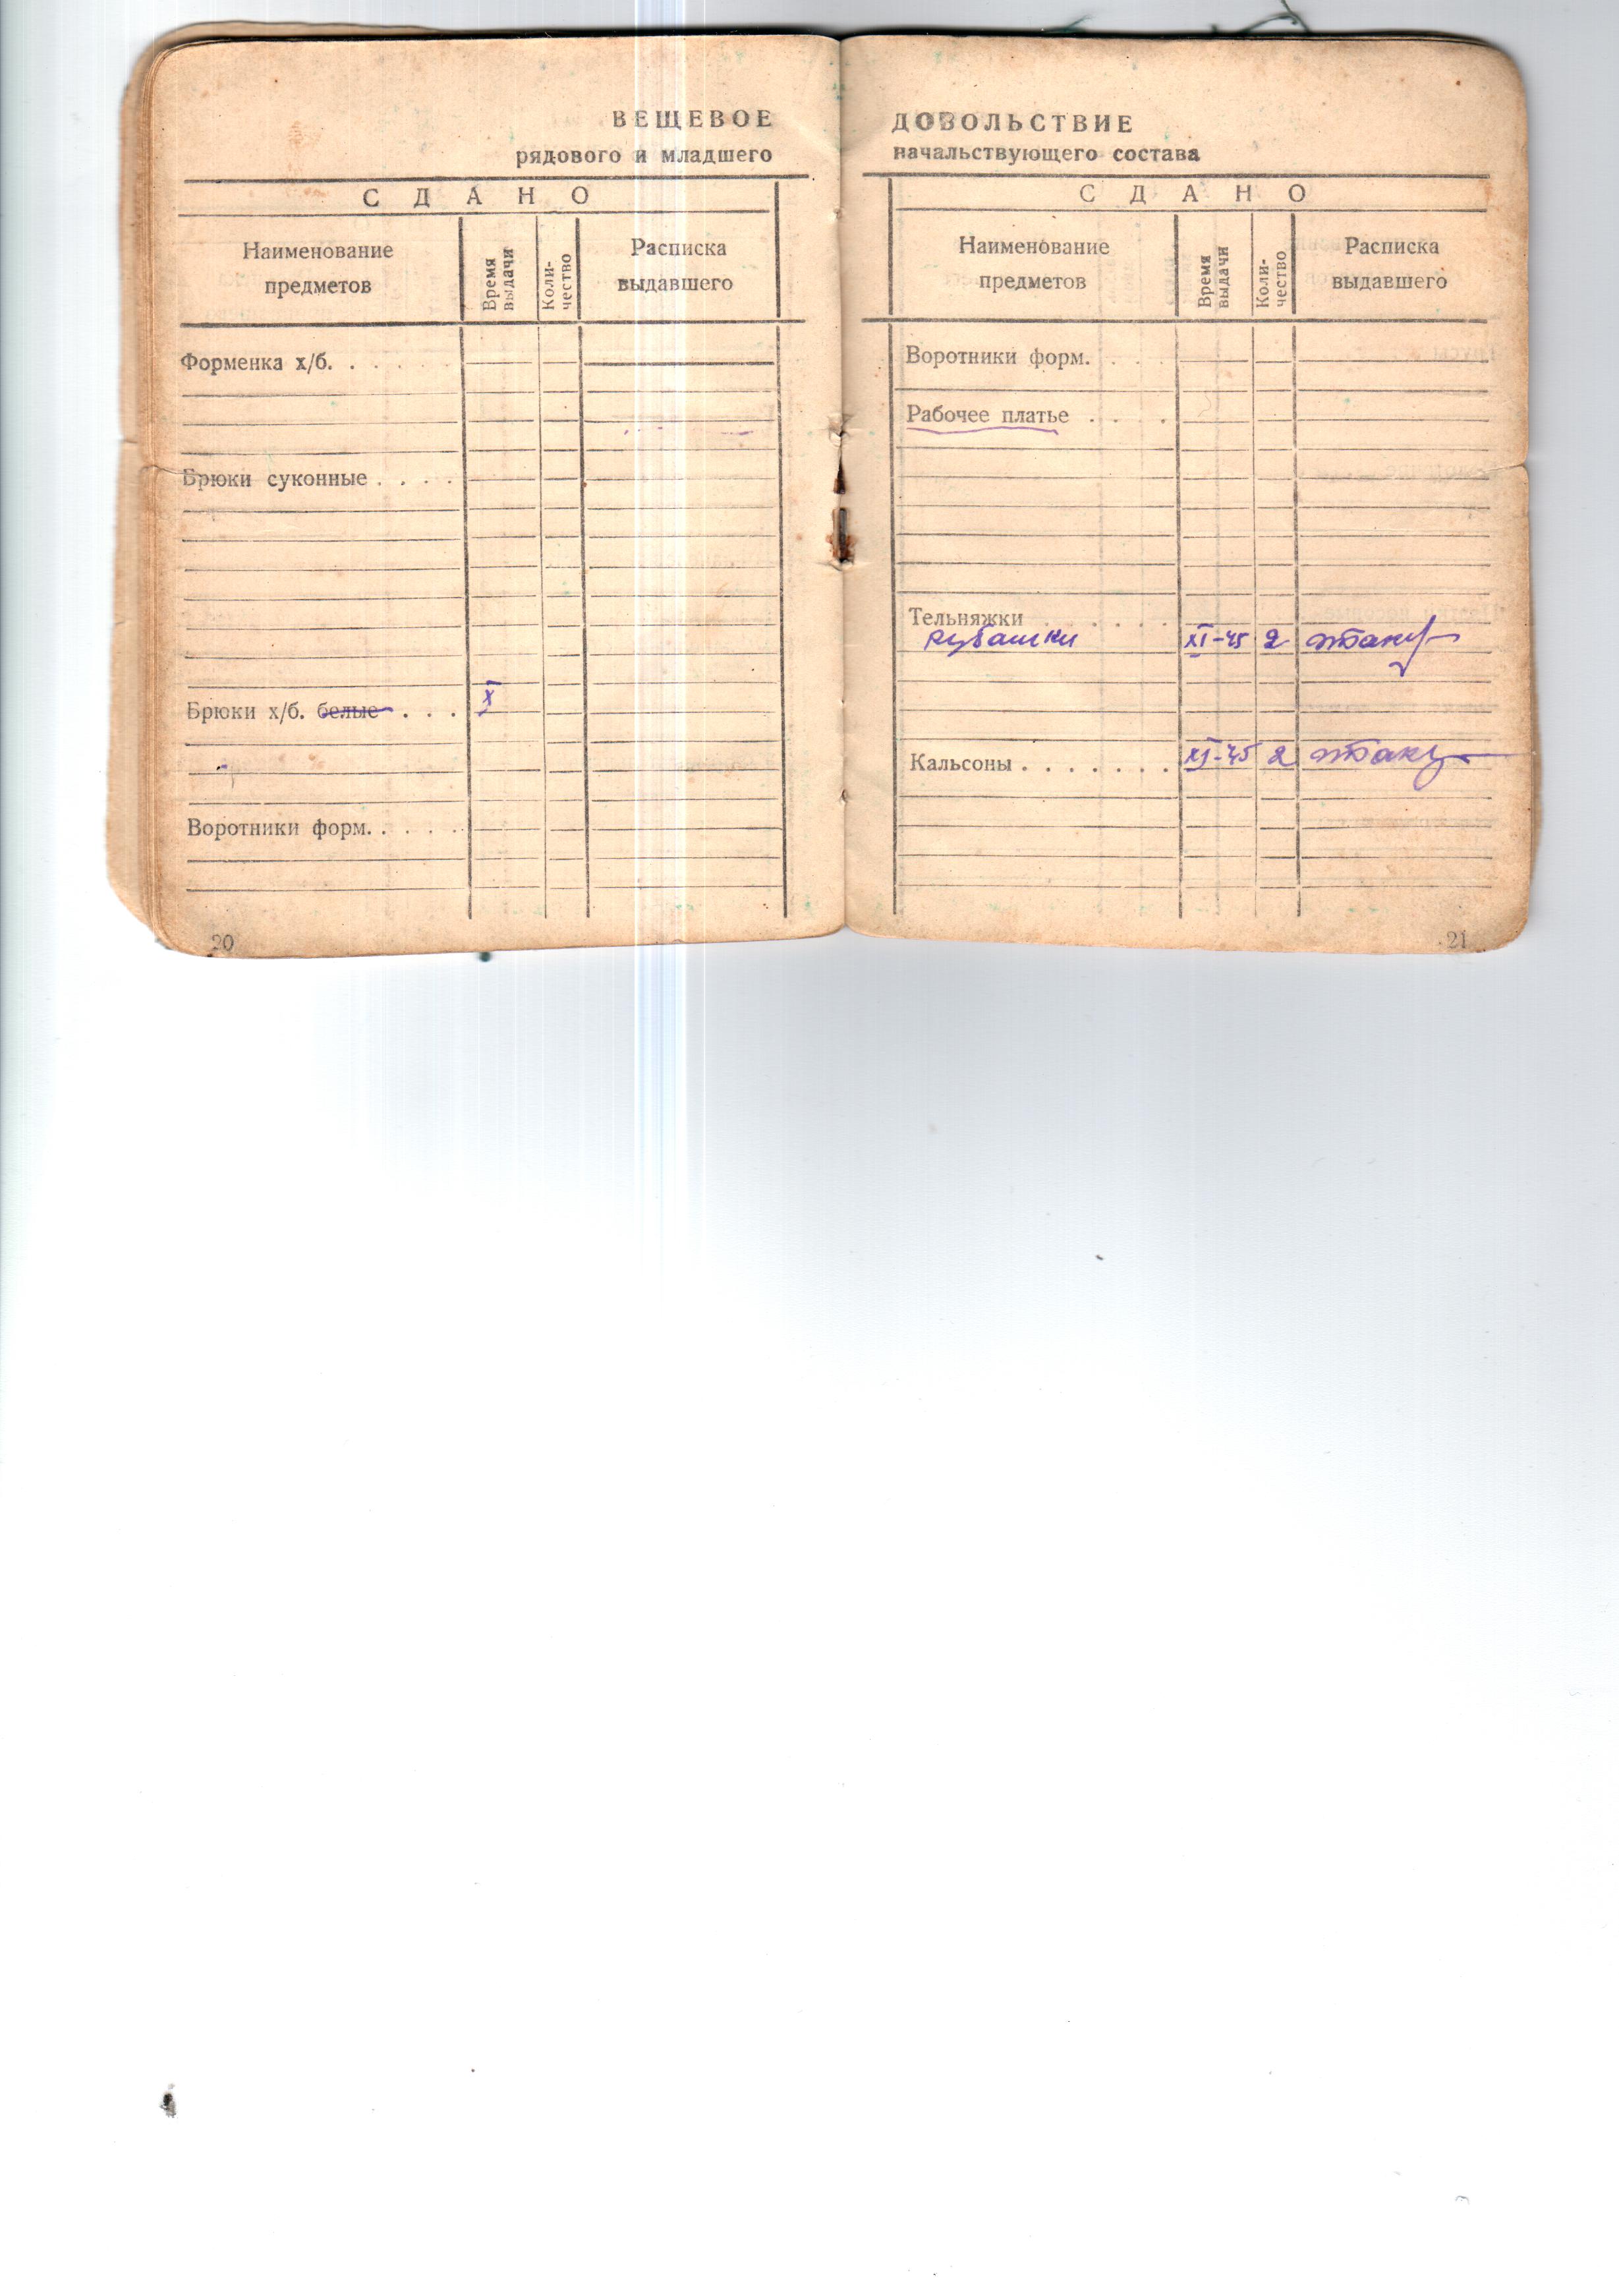 ВЕЩЕВОЕ
рядового и младшего
СДАНО
Наименование предметов
Время выдачи
Коли-чество
Расписка выдавшего
Форменка х/б. . . . . .
Брюки суконные . . . .
Брюки х/б. белые . . . X
Воротники форм. . . . .
20
ДОВОЛЬСТВИЕ
начальствующего состава
СДАНО
Наименование предметов
Время выдачи
Коли-чество
Расписка выдавшего
Воротники форм. . . .
Рабочее платье . . . .
Тельняжки . . . . . .
рубашки XI-45 2
Кальсоны . . . . . . . XI-45 2
21